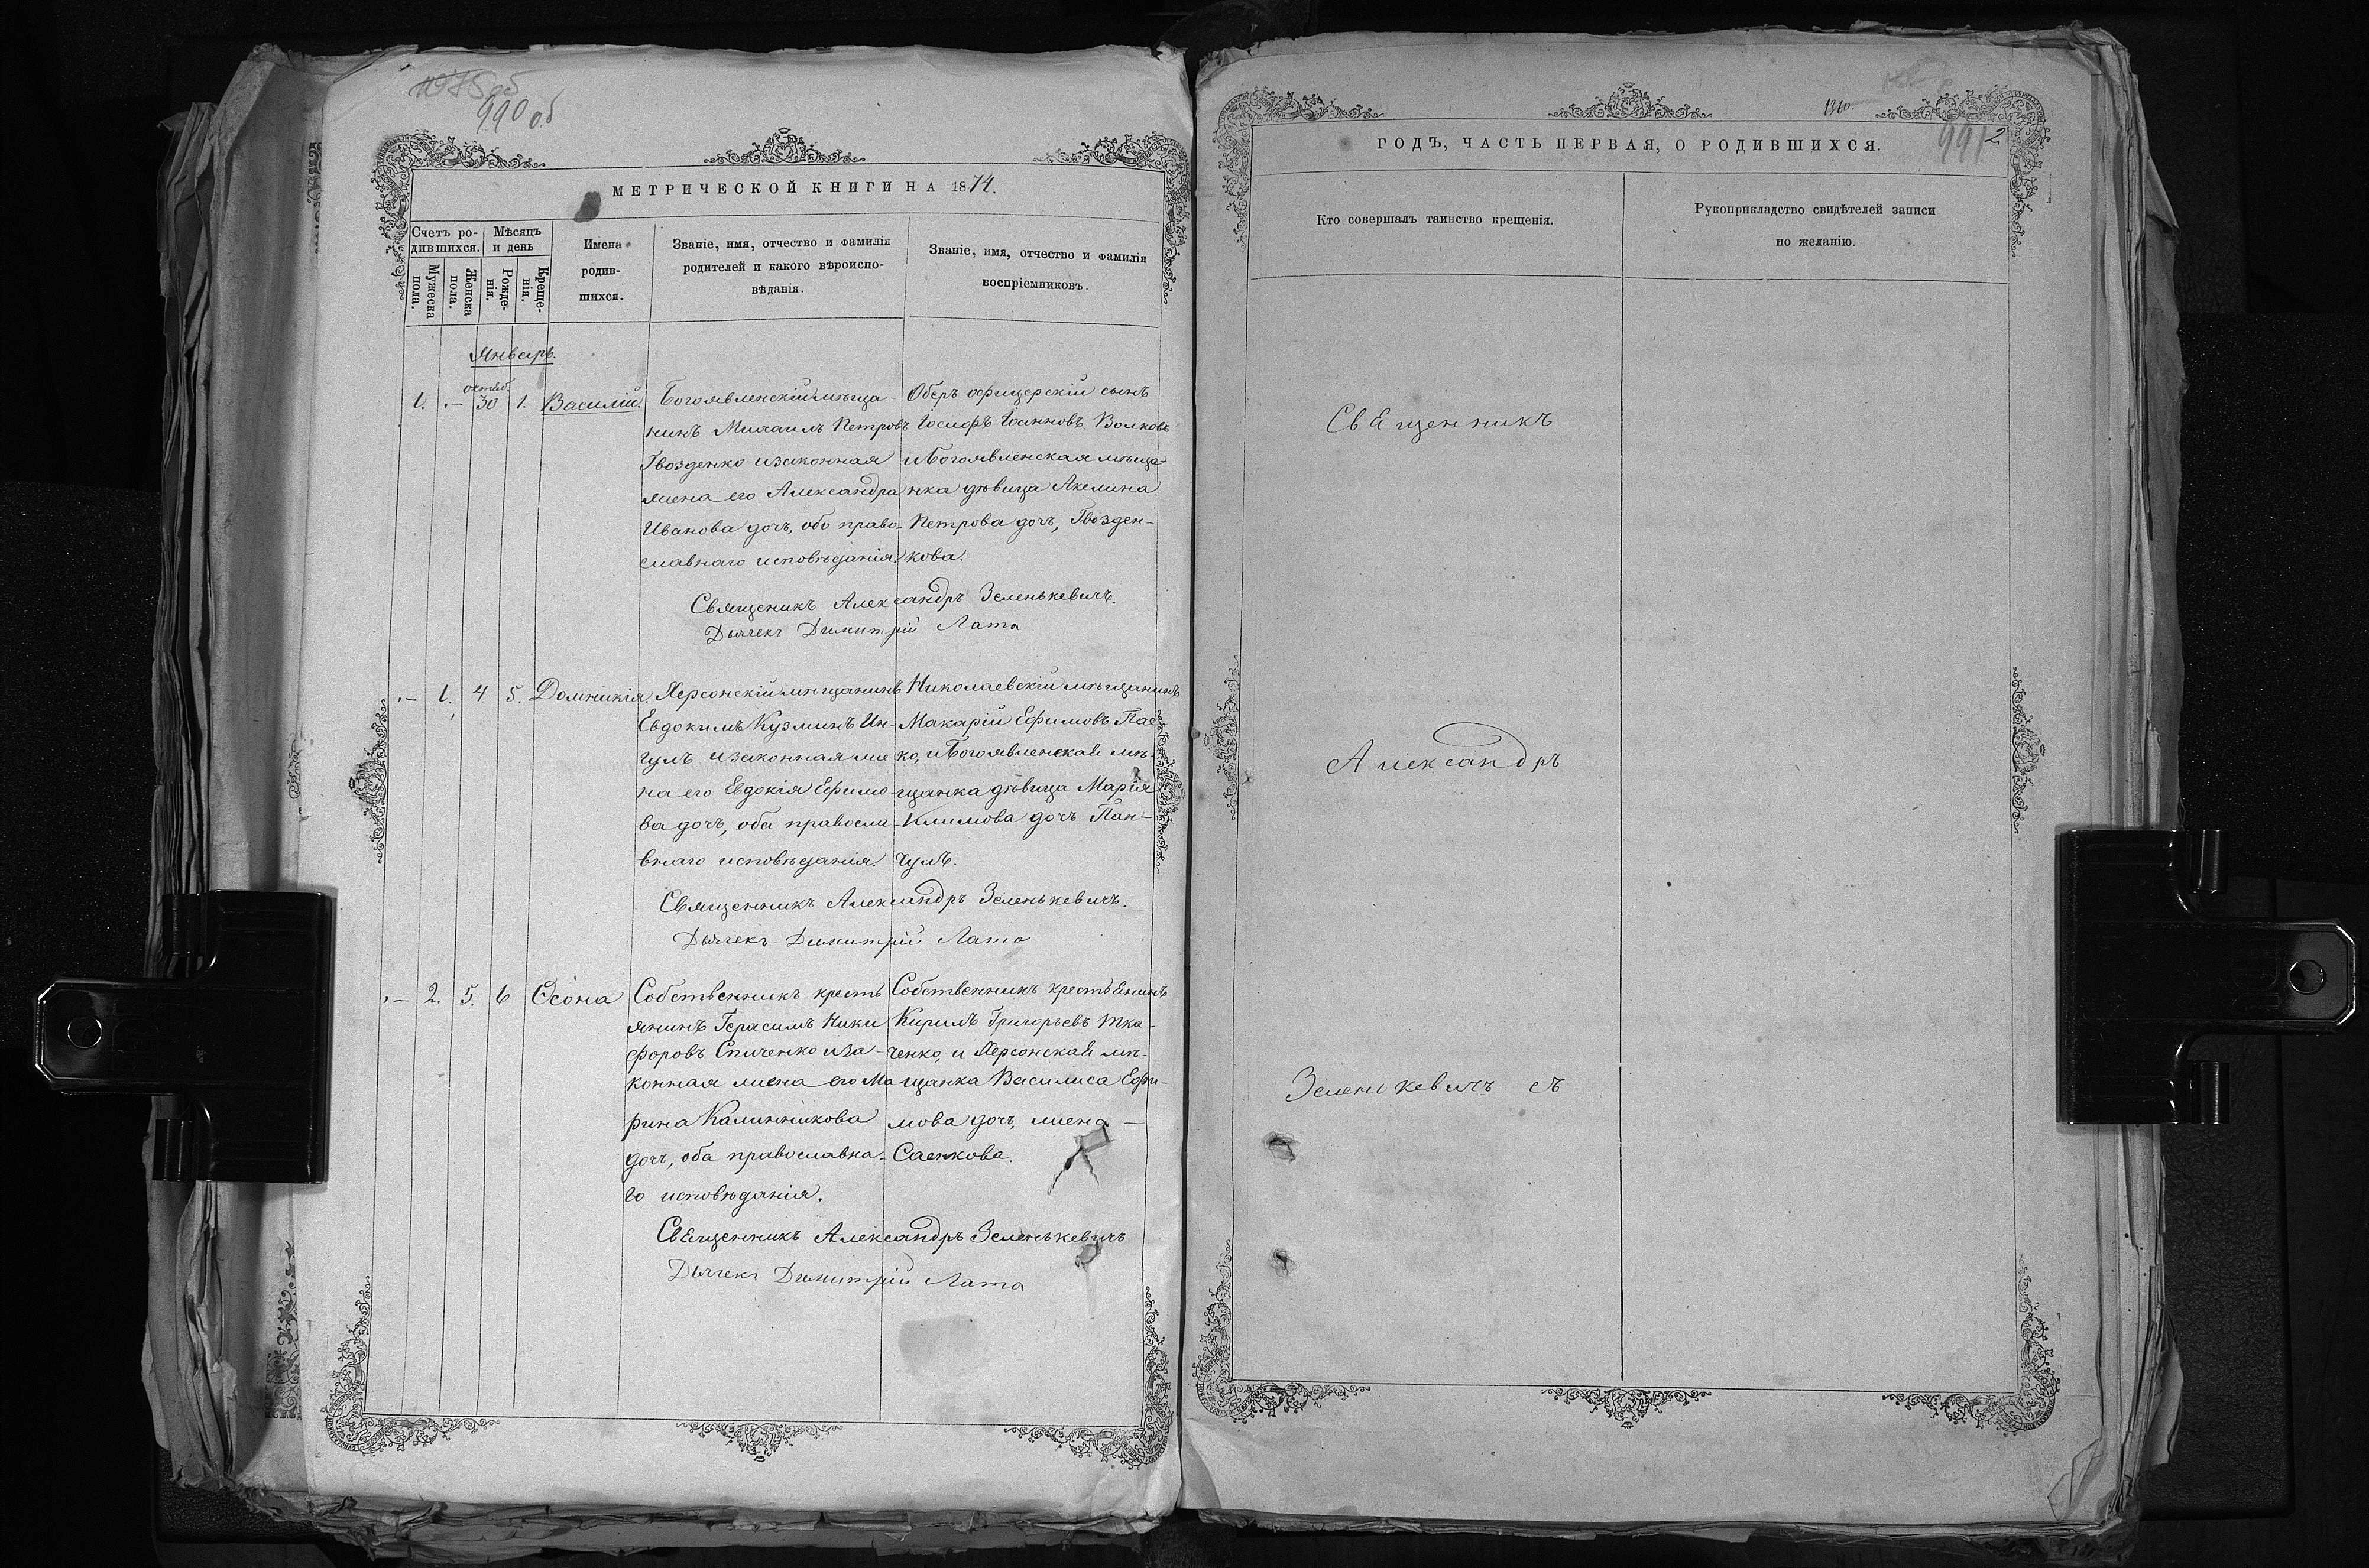 990 об
МЕТРИЧЕСКОЙ КНИГИ НА 1874.
Счетъ родившихся.
Мѣсяцъ и день
Мужеска пола.
Женска пола.
Рожденія.
Крещенія.
Имена родившихся.
Званіе, имя, отчество и фамилія родителей и какого вѣроисповѣданія.
Званіе, имя, отчество и фамилія воспріемниковъ.
Январь.
1. — 30 1. Василій.
Богоявленскій мѣща-
нинъ Михаилъ Петровъ
Гвозденко и законная
жена его Александра
Иванова дочь, обо право-
славнаго исповѣданія.
Оберъ офицерскій сынъ
Іосифъ Іоанновъ Волковъ
и Богоявленская мѣща-
нка дѣвица Акелина
Петрова дочь, Гвозден-
кова.
Священикъ Александръ Зеленькевичъ.
Дьячекъ Димитрій Лата
— 1. 4 5. Домникія.
Херсонскій мѣщанинъ
Евдокимъ Кузминъ Ин-
гулъ и законная же
на его Евдокія Ефимо-
ва дочь, оба правосла-
внаго исповѣданія.
Николаевскій мѣщанинъ
Макарій Ефимовъ Пас
ко, и Богоявленская мѣ-
щанка дѣвица Марія
Климова дочь Пан-
чулъ.
Священникъ Александръ Зеленькевичъ.
Дьячекъ Димитрій Лата
— 2. 5. 6 Ѳеона
Собственникъ кресть
янинъ Герасимъ Ники
форовъ Спиченко и за-
конная жена его Ма
рина Калинникова
дочь, оба православна-
го исповѣданія.
Собственникъ крестьянинъ
Кирилъ Григорьевъ Тка-
ченко, и Херсонская мѣ-
щанка Василиса Ефи-
мова дочь, жена —
Саенкова.
Священникъ Александръ Зеленькевичъ
Дьячекъ Димитрій Лата
991 2
ГОДЪ, ЧАСТЬ ПЕРВАЯ, О РОДИВШИХСЯ.
Кто совершалъ таинство крещенія.
Рукоприкладство свидѣтелей записи
по желанію.
Священникъ
Александръ
Зеленькевичъ съ